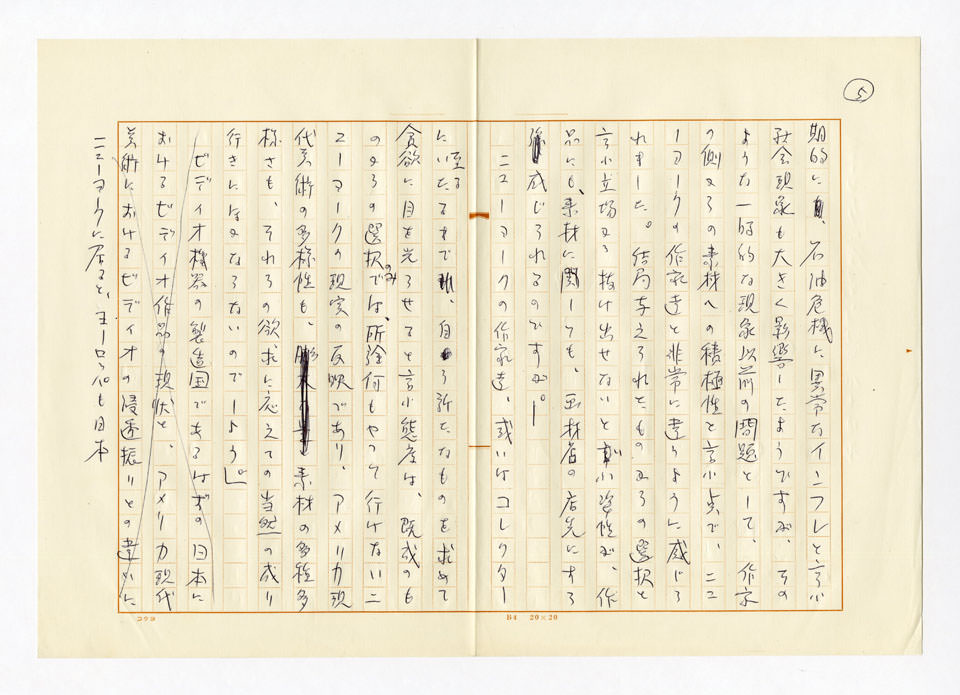 5
期的に、石油危機に異常なインフレと言ふ
社会現象も大きく影響したようですが、その
ような一時的な現象以前の問題として、作家
の側からの素材への積極性と言ふ点で、ニュ
ーヨークの作家達と非常に違うように感じら
れました。結局与えられたものからの選択と
言ふ立場から抜け出せないと言ふ姿勢が、作
品にも、素材に関しても、画材店の店先にすら
感じられるのですが。
ニューヨークの作家達、或いはコレクター
に至るまで、自から新たなものを求めて
貪欲に目を光らせると言ふ態度は、既成のも
のからの選択のみでは、所詮何もやって行けないニ
ューヨークの現実の反映であり、アメリカ現
代美術の多様性も、素材の多種多
様さも、それらの欲求に応えての当然の成り
行きにほかならないのでしょう。」
ビディオ機器の製造国であるはずの日本に
おけるビディオ作品の現状と、アメリカ現代
美術におけるビディオの浸透振りとの違いに
ニューヨークに居ると、ヨーロッパも日本
B4 20×20